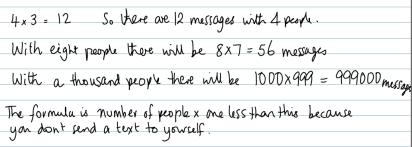 4 x 3 = 12 So there are 12 messages with 4 people.
With eight people there will be 8 x 7 = 56 messages
With a thousand people there will be 1000 x 999 = 999000 messages
The formula is number of people x one less than this because
you don't send a text to yourself.